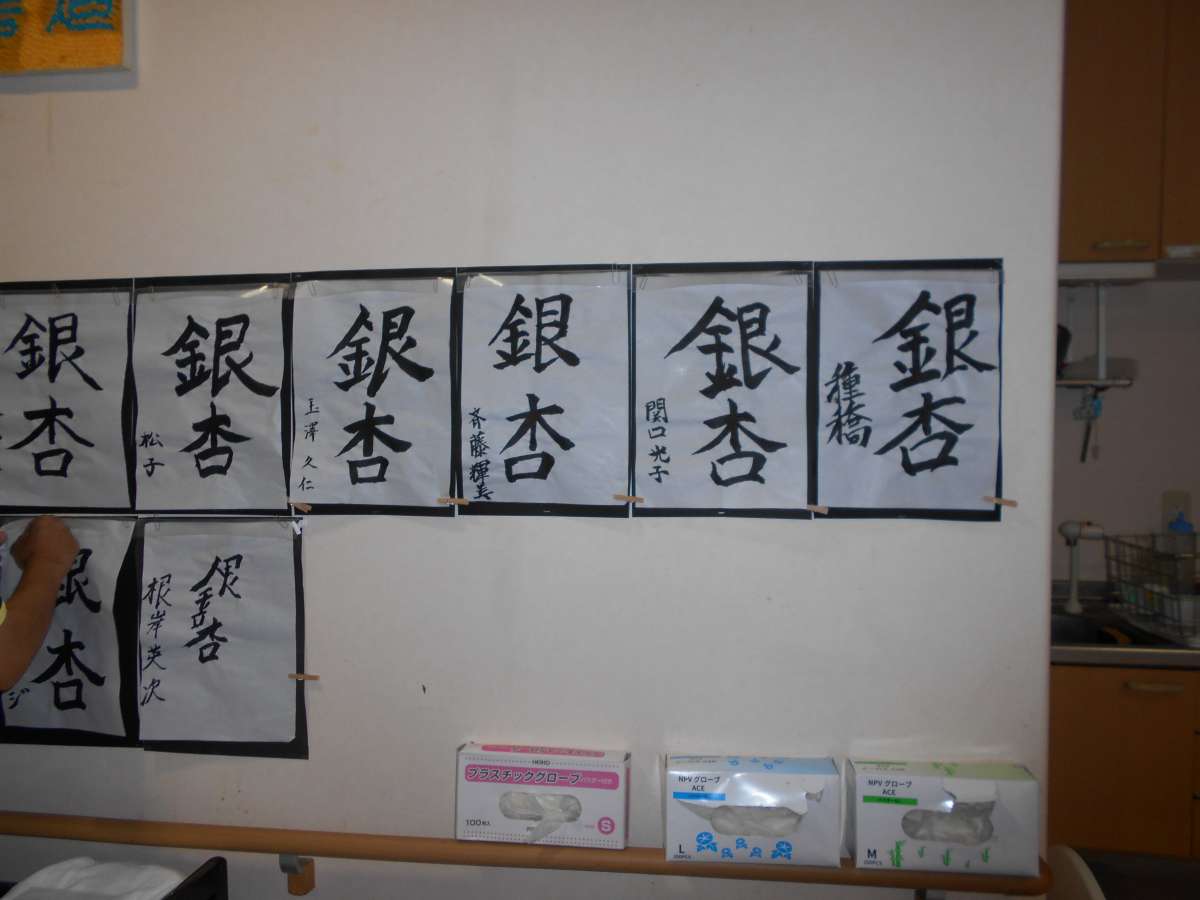 書道
銀杏
銀杏
松子
銀杏
玉澤久仁
銀杏
斉藤輝美
銀杏
関口光子
銀杏
種橋
銀杏
ジ
銀杏
根岸英次
プラスチックグローブ
100枚入
S
NPVグローブ
ACE
L
NPVグローブ
ACE
M